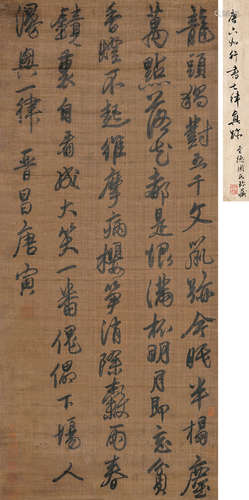 龍頭獨對五千文鼠跡今眠半榻塵
萬點落花都是恨滿杯明月即忘貧
香燈不起維摩病櫻筍消除穀雨春
鏡裏自看成大笑一番傀儡下場人
漫興一律 晉昌唐寅
唐六如行書七律真跡